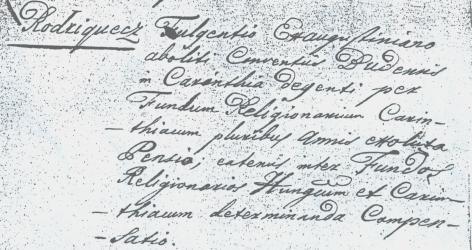 Rodriquez Fulgentio Exaugustiniano
aboliti Conventus Budensis
in Carinthia degenti per
Fundum Religionarium Carin-
-thiacum pluribus annis exoluta
Pensio; eatenus inter Fundos
Religionarios Hung. et Carin-
-thiacum determinanda Compen-
-satio.